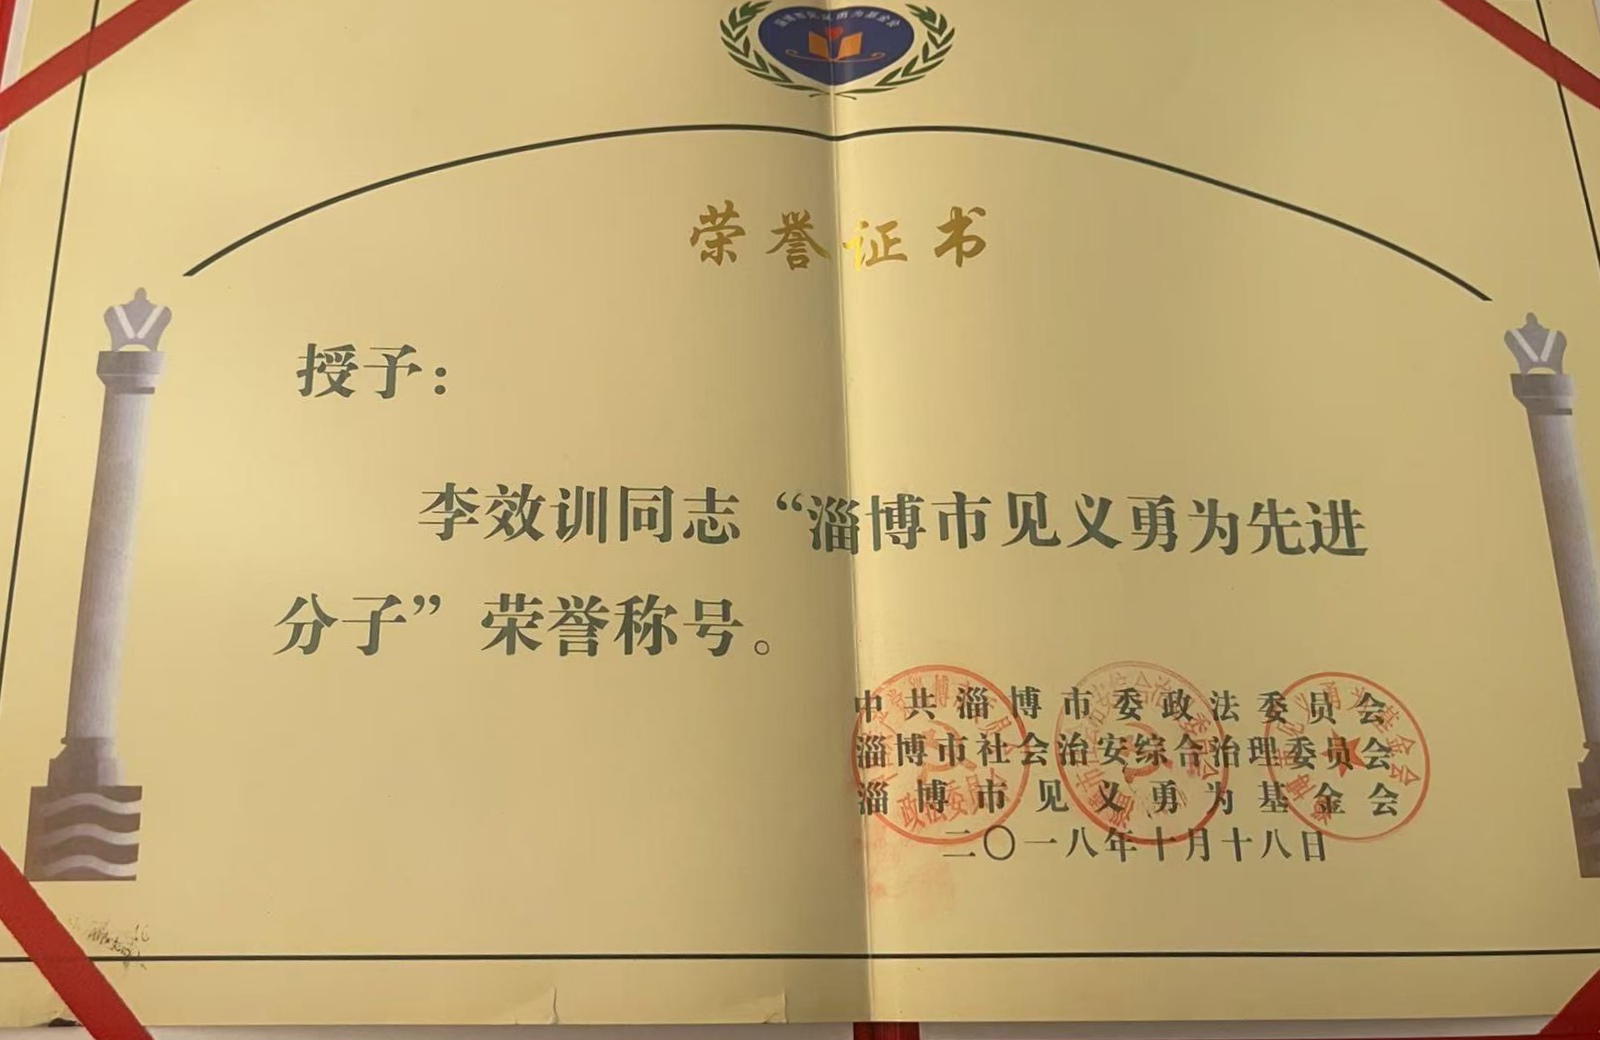 淄博市见义勇为基金会
荣誉证书
授予：
李效训同志“淄博市见义勇为先进
分子”荣誉称号。
中共淄博市委政法委员会
淄博市社会治安综合治理委员会
淄博市见义勇为基金会
二〇一八年十月十八日
政法委员会